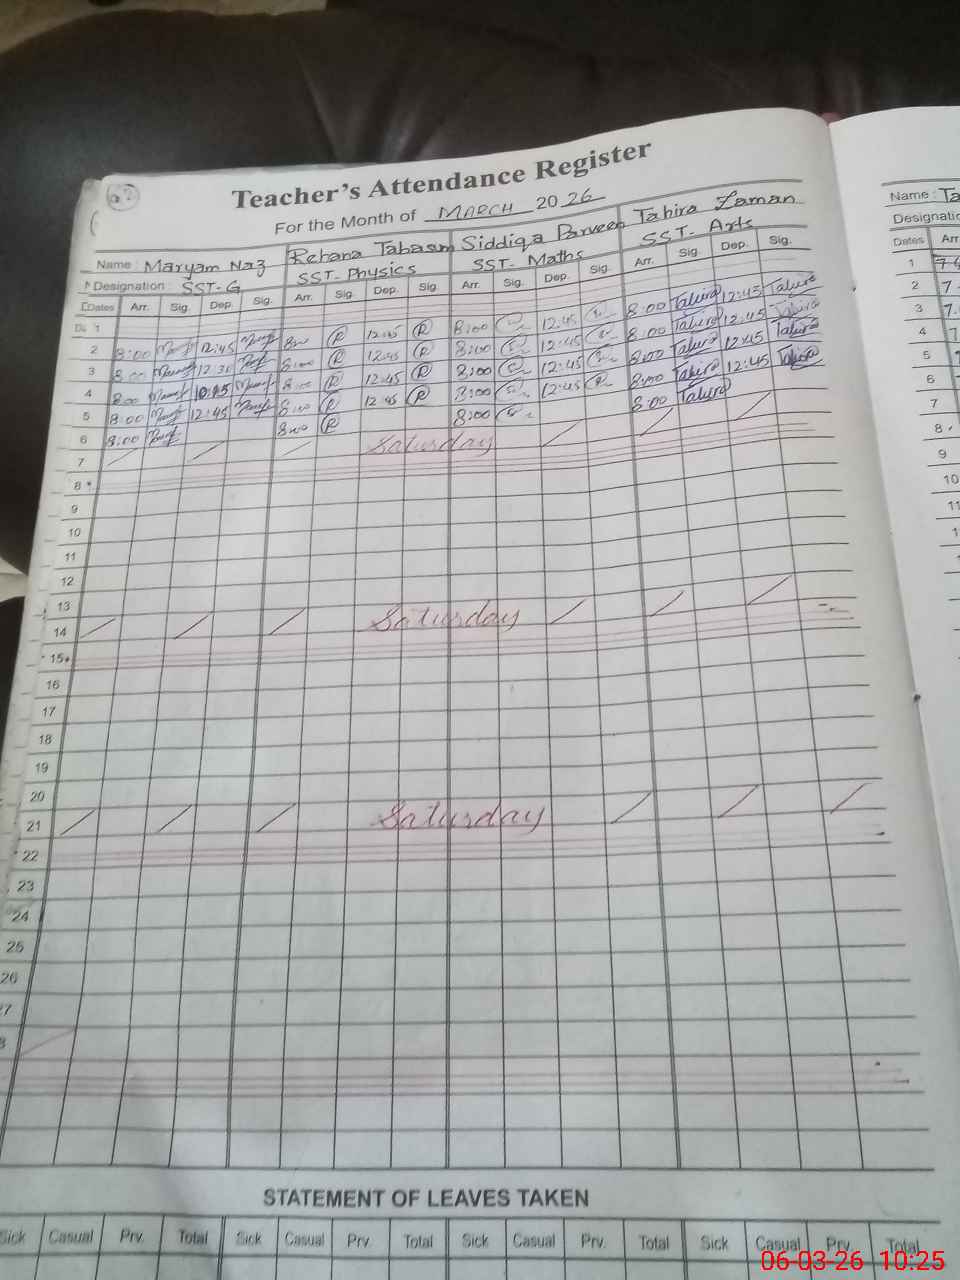 Teacher's Attendance Register
For the Month of MARCH 2026
Name : Maryam Naz Rehana Tabasm Siddiqa Parveen Tahira Zaman
Designation : SST-G SST-Physics SST-Maths SST-Arts
Dates Arr. Sig. Dep. Sig. Arr. Sig. Dep. Sig. Arr. Sig. Dep. Sig. Arr. Sig. Dep. Sig.
1
2 8:00 12:45 8:00 12:45 8:00 12:45 8:00 Tahira 12:45 Tahira
3 8:00 12:30 8:00 12:45 8:00 12:45 8:00 Tahira 12:45 Tahira
4 8:00 8:00 12:45 8:00 12:45 8:00 Tahira 12:45 Tahira
5 8:00 12:45 8:00 12:45 8:00 12:45 8:00 Tahira 12:45 Tahira
6 8:00 8:00 8:00 8:00 Tahira
7 Saturday
8
9
10
11
12
13
14 Saturday
15
16
17
18
19
20
21 Saturday
22
23
24
25
26
STATEMENT OF LEAVES TAKEN
Sick Casual Prv. Total Sick Casual Prv. Total Sick Casual Prv. Total Sick Casual Prv. Total
Name : Ta
Designatio
Dates Arr
1
2
3
4
5
6
7
8
9
10
11
06-03-26 10:25